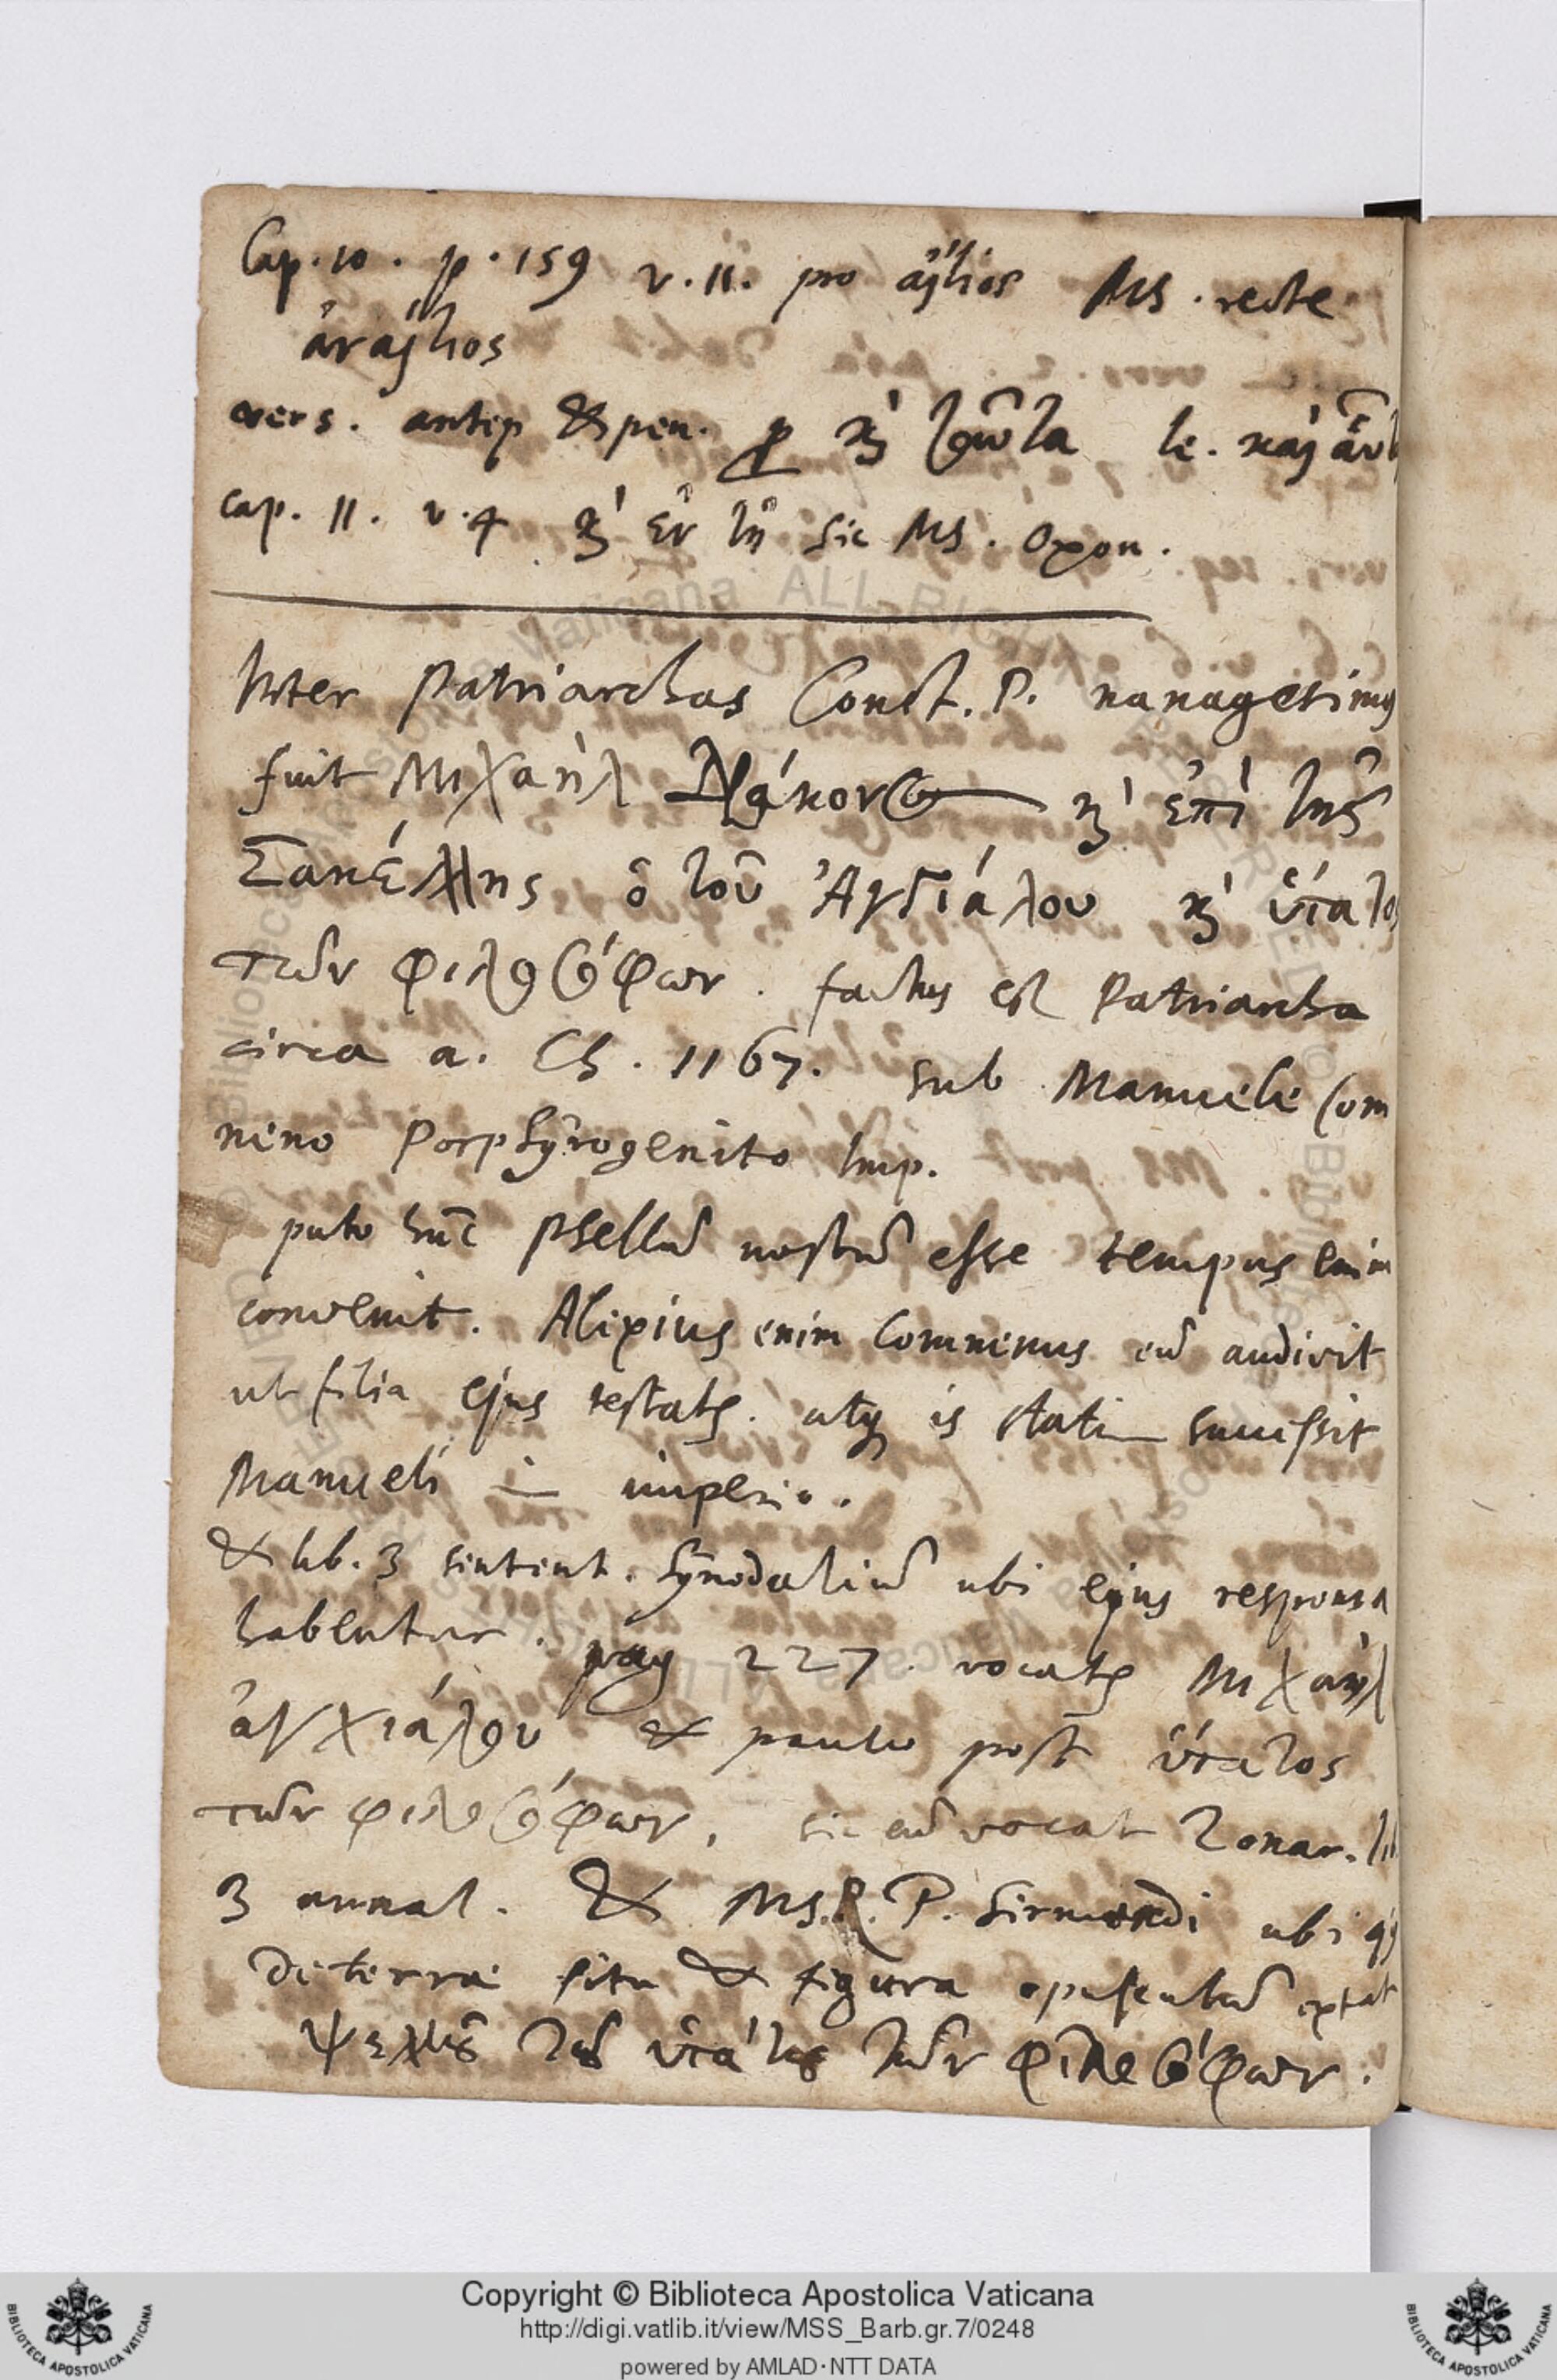 Cap. 10. p. 159 v. 11. pro αἴτιος MS. recte
ἀναίτιος
vers. antep & pen. ꝓ κ̀ ταῦτα le.
cap. 11. v. 4 κ̀ ἐν τῇ sic MS. Oxon.
Inter Patriarchas Const. P. nanagesimus
fuit Μιχαὴλ κ̀ ἐπὶ τῆς
Σακέλλης ὁ τοῦ Ἀγχιάλου κ̀ ὕπατος
τῶν φιλοσόφων. factus est Patriarcha
circa a. Ch. 1167. sub Manuele Com
neno Porphyrogenito Imp.
puto hūc Psellū nostrū esse tempus enim
convenit. Alexius enim Comnenus eū audivit
ut filia ejus testatr. atq; is statim successit
Manueli in imperio.
& lib. 3 sentent. Synodaliū ubi ejus responsa
habentur. pag 227. vocatr Μιχαὴλ
ἀγχιάλου & paulo post ὕπατος
τῶν φιλοσόφων, sic eū vocat Zonar. lib
3 annal. & MS. R. P. Sirmondi ubi
de terrae situ & figura opusculū extat
Ψελλοῦ τοῦ ὑπάτου τῶν φιλοσόφων.
Copyright © Biblioteca Apostolica Vaticana
http://digi.vatlib.it/view/MSS_Barb.gr.7/0248
powered by AMLAD·NTT DATA
BIBLIOTECA APOSTOLICA VATICANA
BIBLIOTECA APOSTOLICA VATICANA